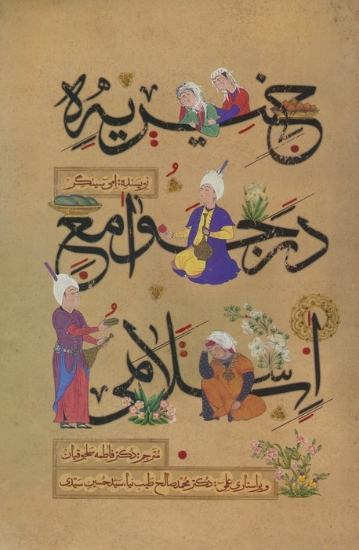 خیریه
در جوامع
اسلامی
نویسنده: امی سینگر
مترجم: دکتر فاطمه سلجوقیان
ویراستاری علمی: دکتر محمد صالح طیب نیا، سید حسین سیدی